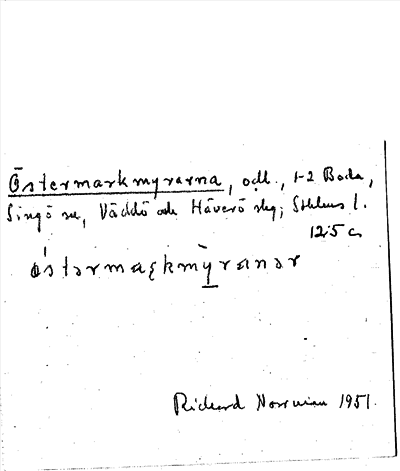 Östermarkmyrarna, odl., 1-2 Boda,
Singö sn, Väddö och Häverö skg; Sthlms l.
12I5 c
östərmaʀkmỳranər
Rickard Norrman 1951.